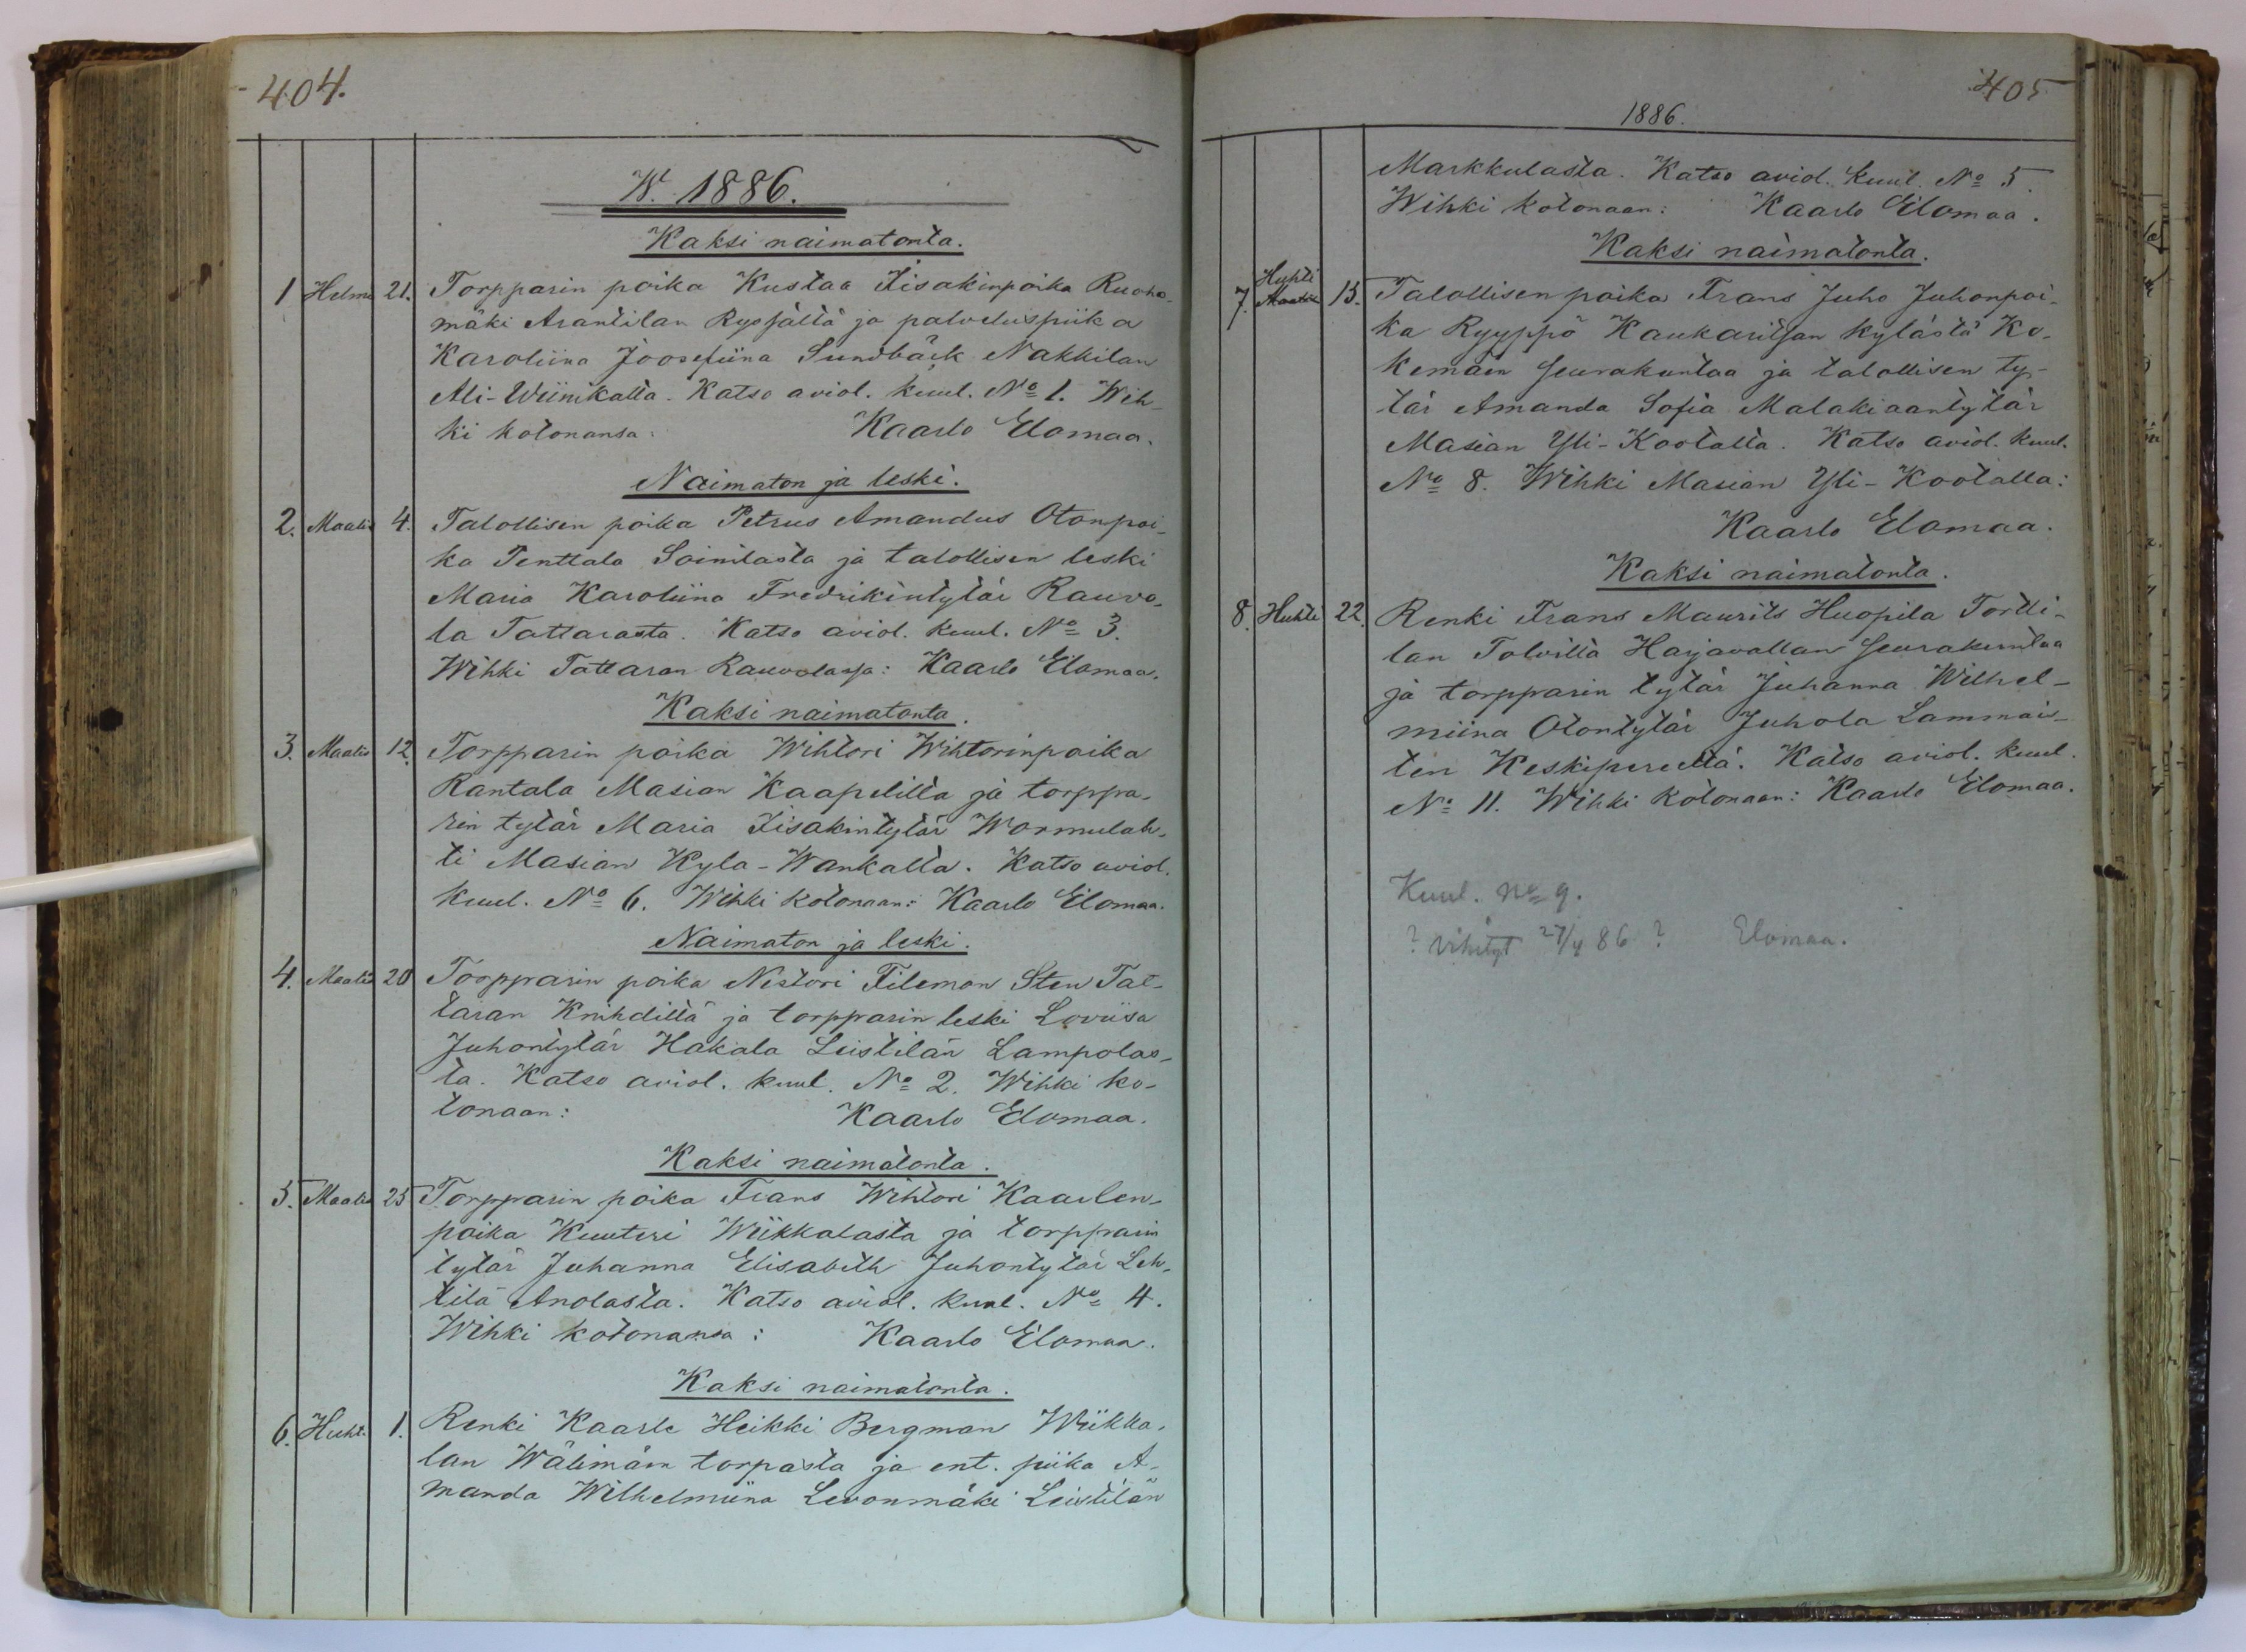 404.
W. 1886.
Kaksi naimatonta.
1 Helmi 21. Torpparin poika Kustaa Iisakinpoika Ruoho-
mäki Arantilan Ryssältä ja palveluspiika
Karoliina Joosefiina Sundbäck Nakkilan
Ali-Wiinikalta. Katso aviol. kuul. No 1. Wih-
ki kotonansa: Kaarlo Elomaa.
Naimaton ja leski.
2. Maalis 4. Talollisen poika Petrus Amandus Otonpoi-
ka Penttala Soinilasta ja talollisen leski
Maria Karoliina Fredrikintytär Rauvo-
la Tattarasta. Katso aviol. kuul. No 3.
Wihki Tattaran Rauvolassa: Kaarlo Elomaa.
Kaksi naimatonta.
3. Maalis 12. Torpparin poika Wihtori Wihtorinpoika
Rantala Masian Kaapelilta ja torppa-
rin tytär Maria Iisakintytär Wormulah-
ti Masian Kyla-Wankalta. Katso aviol.
kuul. No 6. Wihki kotonaan: Kaarlo Elomaa.
Naimaton ja leski.
4. Maalis 20 Torpparin poika Nestori Filemon Sten Tat-
taran Knihdiltä ja torpparin leski Loviisa
Juhontytär Hakala Leistilän Lampolas-
ta. Katso aviol. kuul. No 2. Wihki ko-
tonaan: Kaarlo Elomaa.
Kaksi naimatonta.
5. Maalis 25 Torpparin poika Frans Wihtori Kaarlen-
poika Kuuteri Wiikkalasta ja torpparin
tytär Juhanna Elisabeth Juhontytär Leh-
tilä Anolasta. Katso aviol. kuul. No 4.
Wihki kotonansa: Kaarlo Elomaa.
Kaksi naimatonta.
6. Huht. 1. Renki Kaarle Heikki Bergman Wiikka-
lan Wälimään torpasta ja ent. piika A-
manda Wilhelmiina Levonmäki Leistilän
405
1886.
Markkulasta. Katso aviol. kuul. No 5.
Wihki kotonaan: Kaarlo Elomaa.
Kaksi naimatonta.
Huhti
7. Maalis 15. Talollisen poika Frans Juho Juhonpoi-
ka Ryyppö Kaukaritsan kylästä Ko-
kemäen seurakuntaa ja talollisen ty-
tär Amanda Sofia Malakiaantytär
Masian Yli-Kootalta. Katso aviol. kuul.
No 8. Wihki Masian Yli-Kootalla:
Kaarlo Elomaa.
Kaksi naimatonta.
8. Huhti 22. Renki Frans Maurits Huopila Tortti-
lan Tolvilta Harjavallan seurakuntaa
ja torpparin tytär Juhanna Wilhel-
miina Otontytär Juhola Lammais-
ten Keskipereeltä. Katso aviol. kuul.
No 11. Wihki kotonaan: Kaarlo Elomaa.
Kuul. No 9.
? vihityt 27/4 86 ? Elomaa.